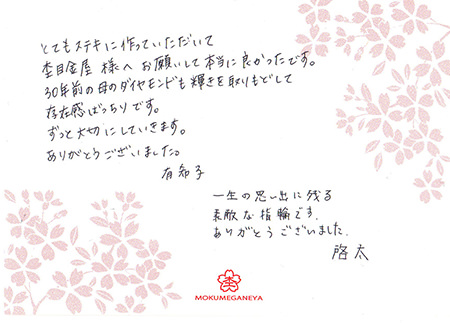 とてもステキに作っていただいて
杢目金屋 様へ お願いして本当に良かったです。
30年前の母のダイヤモンドも輝きを取りもどして
存在感ばっちりです。
ずっと大切にしていきます。
ありがとうございました。
有希子
一生の思い出に残る
素敵な指輪です。
ありがとうございました。
啓太
MOKUMEGANEYA